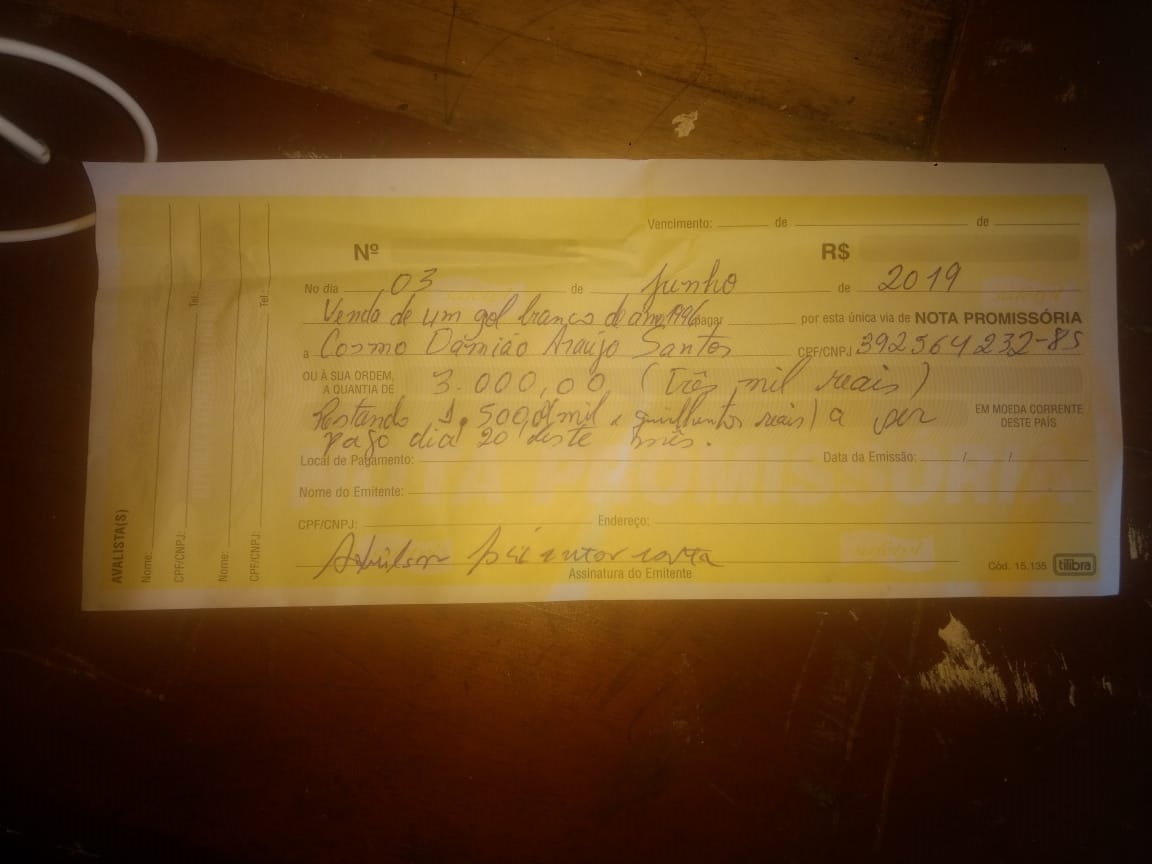 Vencimento: de de
Nº R$
No dia 03 de junho de 2019
Venda de um gol branco de ano 1996 pagar por esta única via de NOTA PROMISSÓRIA
a Cosmo Damiao Araujo Santos CPF/CNPJ 392564232-85
OU À SUA ORDEM,
A QUANTIA DE 3.000,00 (Três mil reais)
Restando 1.500,00 (mil e quilhentos reais) a ser
EM MOEDA CORRENTE
DESTE PAÍS
pago dia 20 deste mês.
Local de Pagamento: Data da Emissão: / /
Nome do Emitente:
CPF/CNPJ: Endereço:
Assinatura do Emitente
Cód. 15.135 tilibra
AVALISTA(S)
Nome: Tel.:
CPF/CNPJ:
Nome: Tel.:
CPF/CNPJ:
NOTA PROMISSÓRIA